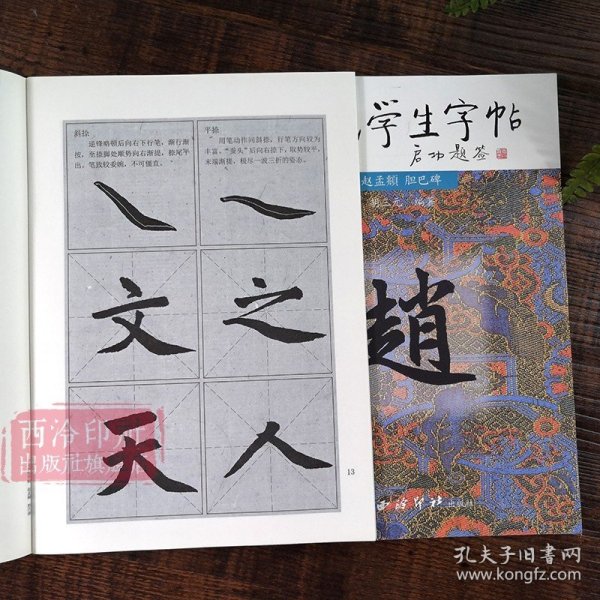 斜捺
逆锋略顿后向右下行笔,渐行渐
按,至捺脚处顺势向右渐提,捺尾平
出。笔致较委婉,不可僵直。
平捺
用笔动作同斜捺,行笔方向较为
丰富,“蚕头”后向右捺下,取势较平,
末端渐提,极尽一波三折的姿态。
文
之
天
人
13
学生字帖
启功题签
赵孟頫 胆巴碑
编著
趙
西泠印社
出版社
西泠印
出版社旗
孔夫子旧书网
www.kongfz.com